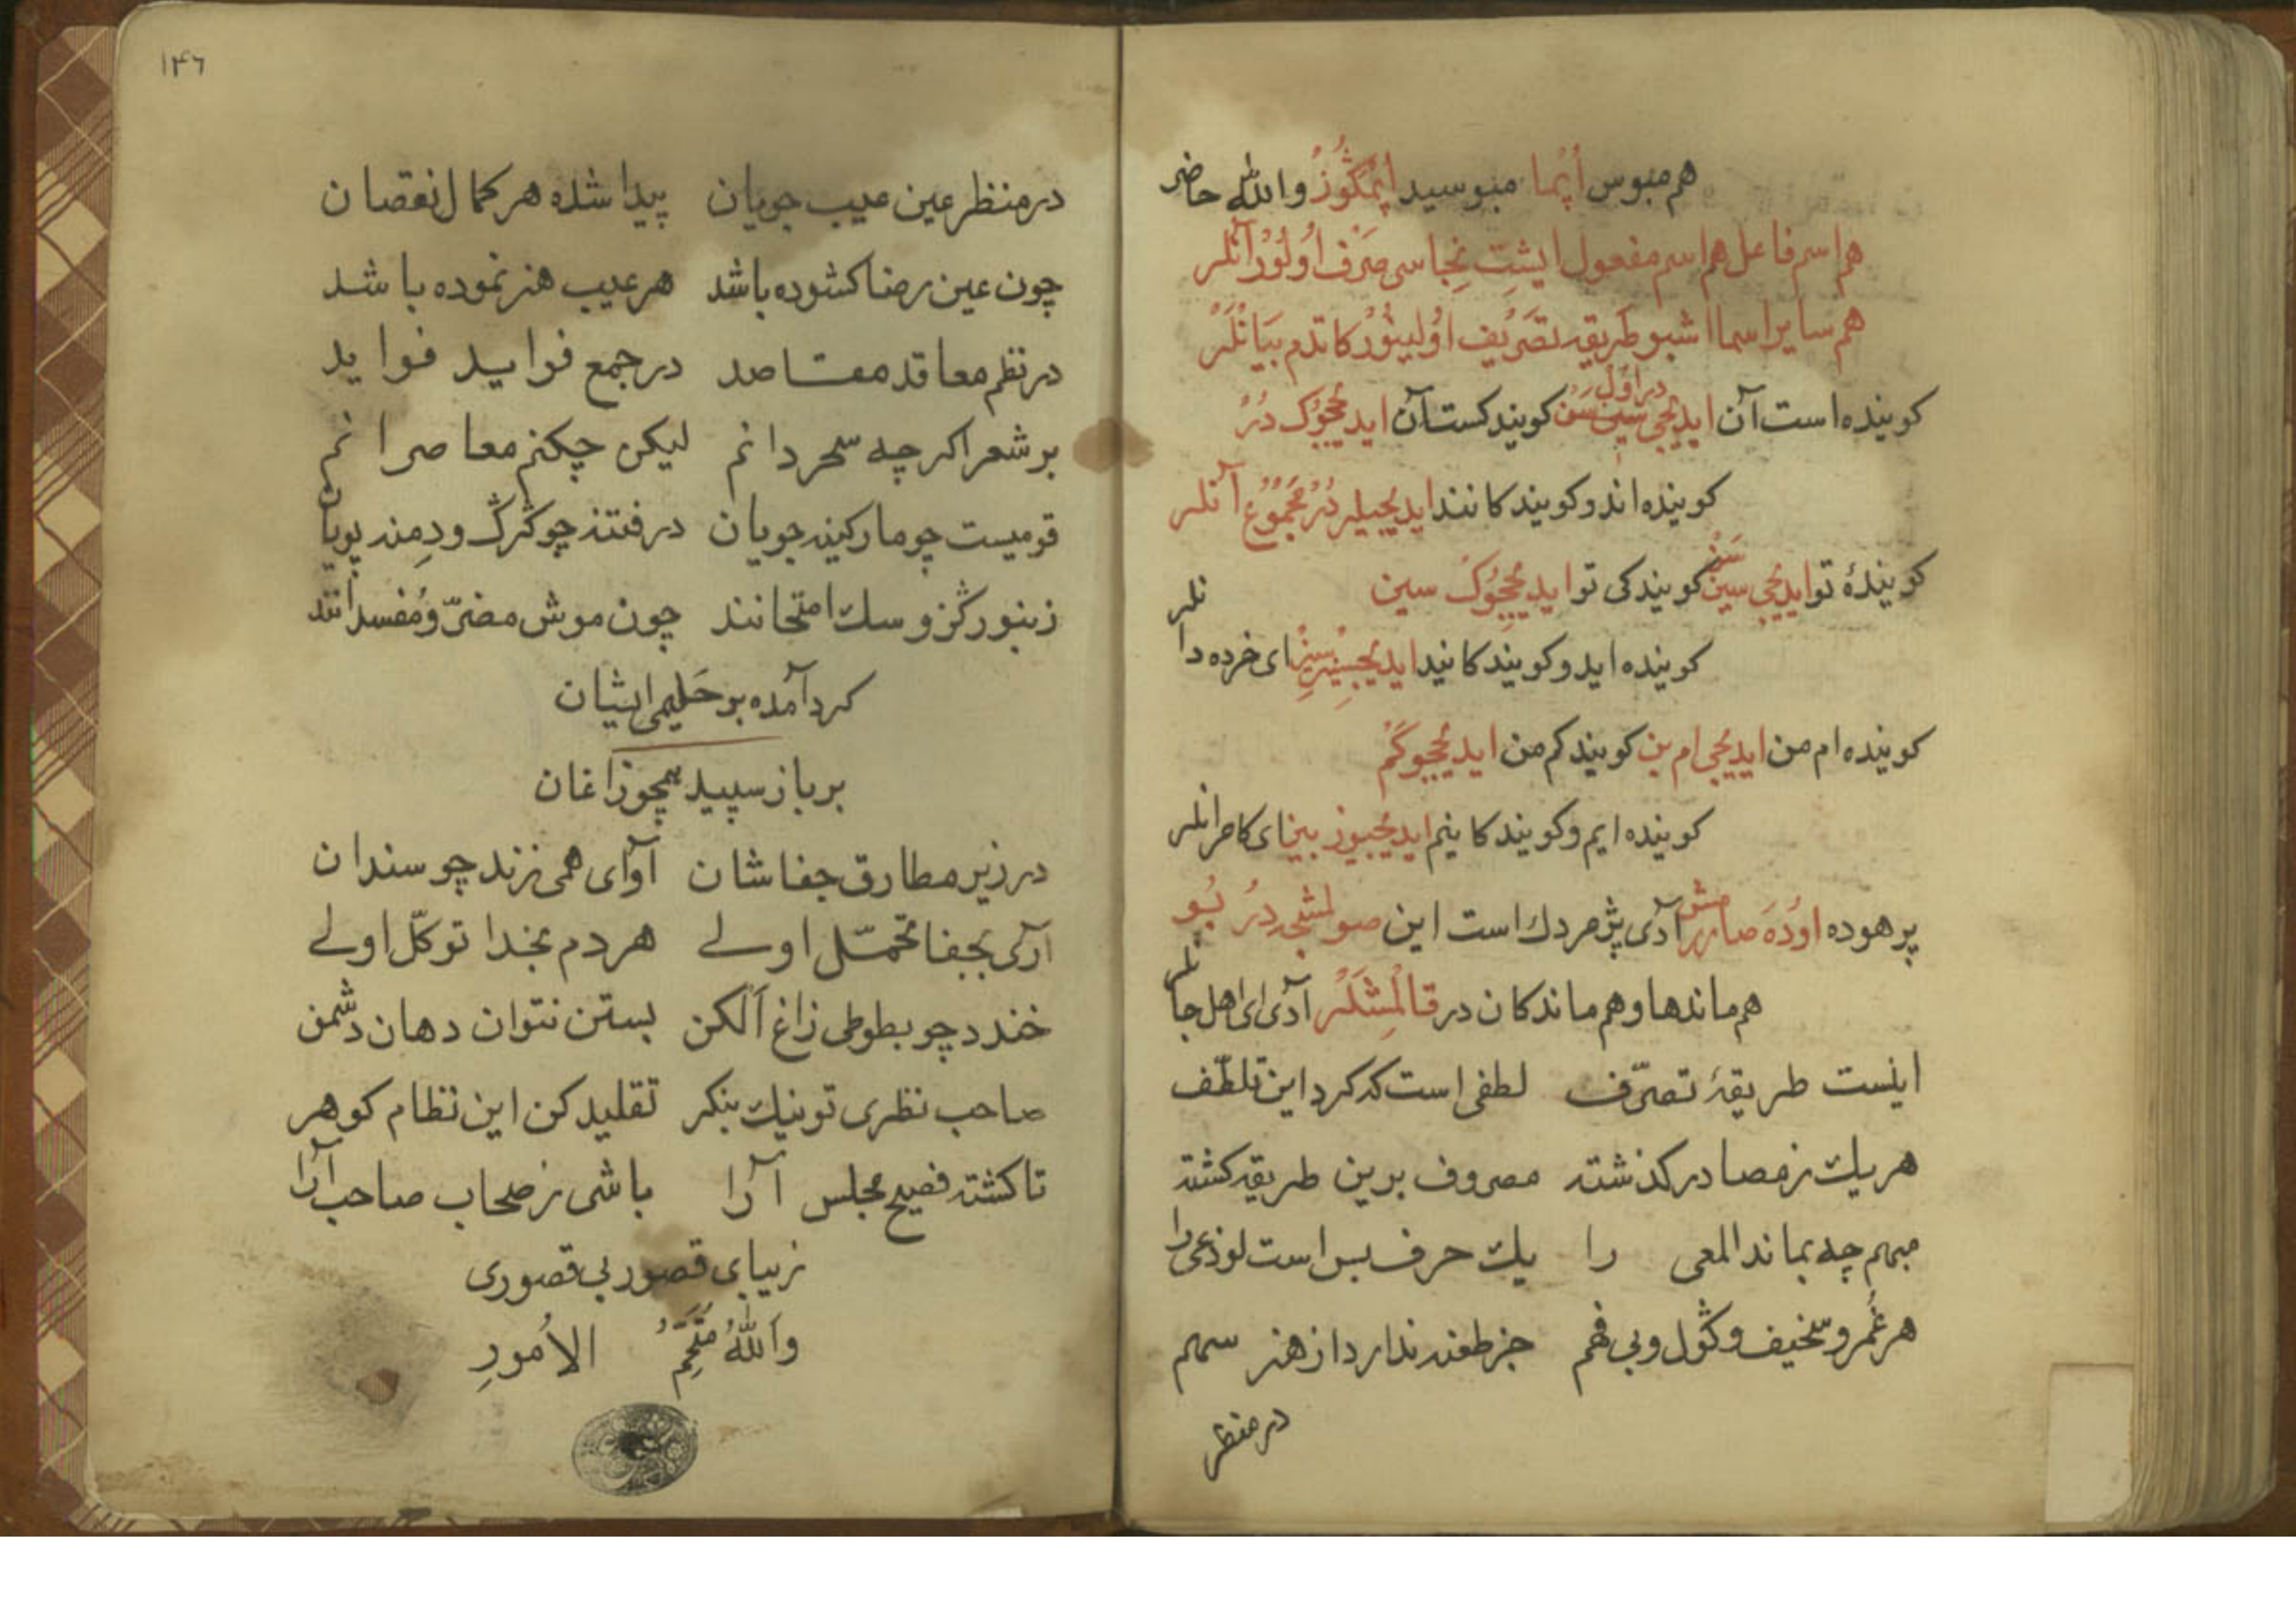 هم مبوس اُپْما مبوسید اُپْمَکُوزْ والله حاضر
هم اسم فاعل هم اسم مفعول ایشِت نِجاسی صَرْف اُولُوُرْ آنْلر
هم سایر اسما اشبو طریقه تَصْرِیف اوُلینُوُرْ کاتدم بَیَانْلَرْ
کوینده است آن ایدیجی سین سَنْ کویندکست آن ایدیجُوک دُرْ
در اوّل
کوینده اند و کویندکانند ایدیجیلر دُرْ مَجْمُوُعْ آنلر
کویندهٔ تو ایدیجی سین سَنْ کویندکی تو ایدیجُوکْ سین
کوینده اید و کویندکانید ایدیجیسِزْ سِزْ ای خرده دانلر
کوینده ام من ایدیجی ام بن کویندکم من ایدیجوکَمْ
کوینده ایم و کویندکانیم ایدیجیوز بیز ای کامرانلر
پرهوده اوُدَه صارَرْمش آدی پژمردك است این صولمشجه دِرُ بُو
هم ماندها و هم ماندکان در قالْمِشْلَرْ آدی ای اهل جانلر
اینست طریقهٔ تصرّف لطفی است که کرد این تلطّف
هر یك ز مصادر کذشته مصروف برین طریقه کشته
مبهم چه بماند المعی را یك حرف بس است لوذعی را
هر غُمر و سخیف و کَول و بی فهم جز طعنه ندارد از هنر سهم
در منظر
۱۴۶
در منظر عین عیب جویان پیدا شده هر کمال نقصان
چون عین رضا کشوده باشد هر عیب هنر نموده باشد
در نظم معاقد مقاصد در جمع فواید فواید
بر شعر اکرچه سحر دانم لیکن چکنم معاصرانم
قومیست چو مار کینه جویان در فتنه چو کرك و دمنه پویان
زنبور کز و سك امتحانند چون موش مضرّ و مُفسدانند
کرد آمده بر حَلیمی ایشان
بر باز سپید همچو زاغان
در زیر مطارق جفاشان آوای همی نزند چو سندان
آری بجفا تحمّل اولے هر دم بخدا توکّل اولے
خندد چو بطوطی زاغ اَلکن بستن نتوان دهان دشمن
صاحب نظری تو نیك بنکر تقلید کن این نظام کوهر
تا کشته فصیح مجلس آرا باشی ز صحاب صاحب آرا
زیبای قصور بی قصوری
وَاللّٰهُ مُتَمِّمُ الاُمورِ